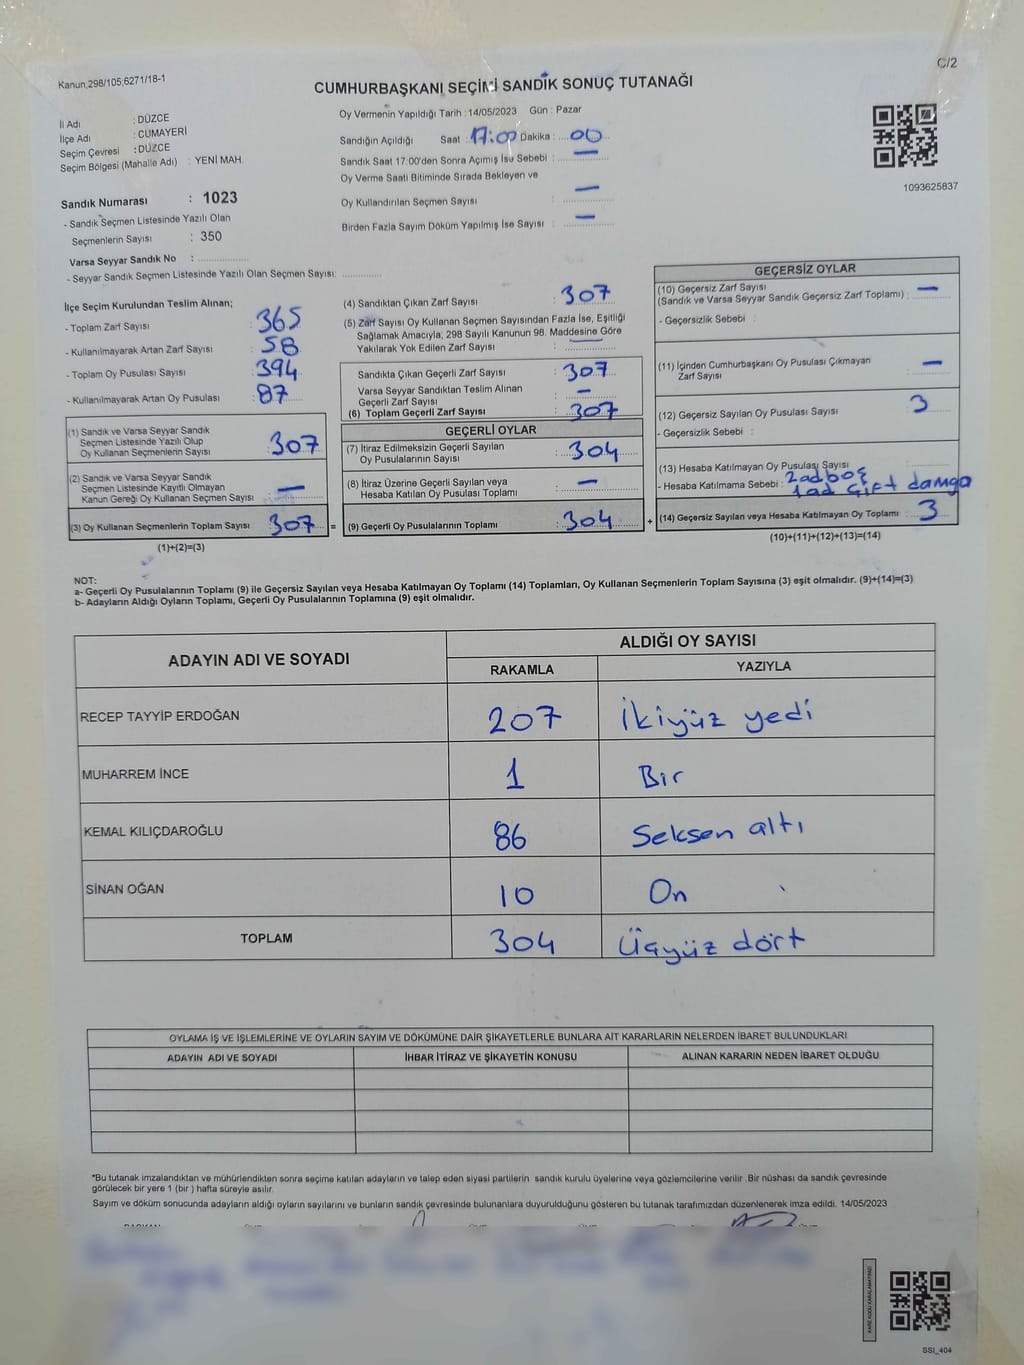 C/2
Kanun,298/105;6271/18-1
CUMHURBAŞKANI SEÇİMİ SANDIK SONUÇ TUTANAĞI
İl Adı : DÜZCE
İlçe Adı : CUMAYERİ
Seçim Çevresi : DÜZCE
Seçim Bölgesi (Mahalle Adı) : YENİ MAH.
Sandık Numarası : 1023
- Sandık Seçmen Listesinde Yazılı Olan
Seçmenlerin Sayısı : 350
Varsa Seyyar Sandık No :
- Seyyar Sandık Seçmen Listesinde Yazılı Olan Seçmen Sayısı:
Oy Vermenin Yapıldığı Tarih : 14/05/2023 Gün : Pazar
Sandığın Açıldığı Saat : 17:00 Dakika : 00
Sandık Saat 17:00'den Sonra Açımış İse Sebebi : —
Oy Verme Saati Bitiminde Sırada Bekleyen ve
Oy Kullandırılan Seçmen Sayısı : —
Birden Fazla Sayım Döküm Yapılmış İse Sayısı : —
1093625837
İlçe Seçim Kurulundan Teslim Alınan;
- Toplam Zarf Sayısı : 365
- Kullanılmayarak Artan Zarf Sayısı : 58
- Toplam Oy Pusulası Sayısı : 394
- Kullanılmayarak Artan Oy Pusulası : 87
(1) Sandık ve Varsa Seyyar Sandık
Seçmen Listesinde Yazılı Olup
Oy Kullanan Seçmenlerin Sayısı : 307
(2) Sandık ve Varsa Seyyar Sandık
Seçmen Listesinde Kayıtlı Olmayan
Kanun Gereği Oy Kullanan Seçmen Sayısı : —
(3) Oy Kullanan Seçmenlerin Toplam Sayısı : 307 =
(1)+(2)=(3)
(4) Sandıktan Çıkan Zarf Sayısı : 307
(5) Zarf Sayısı Oy Kullanan Seçmen Sayısından Fazla İse, Eşitliği
Sağlamak Amacıyla, 298 Sayılı Kanunun 98. Maddesine Göre
Yakılarak Yok Edilen Zarf Sayısı : —
Sandıkta Çıkan Geçerli Zarf Sayısı : 307
Varsa Seyyar Sandıktan Teslim Alınan
Geçerli Zarf Sayısı : —
(6) Toplam Geçerli Zarf Sayısı : 307
GEÇERLİ OYLAR
(7) İtiraz Edilmeksizin Geçerli Sayılan
Oy Pusulalarının Sayısı : 304
(8) İtiraz Üzerine Geçerli Sayılan veya
Hesaba Katılan Oy Pusulası Toplamı : —
(9) Geçerli Oy Pusulalarının Toplamı : 304 +
GEÇERSİZ OYLAR
(10) Geçersiz Zarf Sayısı
(Sandık ve Varsa Seyyar Sandık Geçersiz Zarf Toplamı) : —
- Geçersizlik Sebebi :
(11) İçinden Cumhurbaşkanı Oy Pusulası Çıkmayan
Zarf Sayısı : —
(12) Geçersiz Sayılan Oy Pusulası Sayısı : 3
- Geçersizlik Sebebi :
(13) Hesaba Katılmayan Oy Pusulası Sayısı
- Hesaba Katılmama Sebebi : 2 ad boş
1 ad çift damga
(14) Geçersiz Sayılan veya Hesaba Katılmayan Oy Toplamı : 3
(10)+(11)+(12)+(13)=(14)
NOT:
a- Geçerli Oy Pusulalarının Toplamı (9) ile Geçersiz Sayılan veya Hesaba Katılmayan Oy Toplamı (14) Toplamları, Oy Kullanan Seçmenlerin Toplam Sayısına (3) eşit olmalıdır. (9)+(14)=(3)
b- Adayların Aldığı Oyların Toplamı, Geçerli Oy Pusulalarının Toplamına (9) eşit olmalıdır.
ADAYIN ADI VE SOYADI ALDIĞI OY SAYISI
RAKAMLA YAZIYLA
RECEP TAYYİP ERDOĞAN 207 İkiyüz yedi
MUHARREM İNCE 1 Bir
KEMAL KILIÇDAROĞLU 86 Seksen altı
SİNAN OĞAN 10 On
TOPLAM 304 Üçyüz dört
OYLAMA İŞ VE İŞLEMLERİNE VE OYLARIN SAYIM VE DÖKÜMÜNE DAİR ŞİKAYETLERLE BUNLARA AİT KARARLARIN NELERDEN İBARET BULUNDUKLARI
ADAYIN ADI VE SOYADI İHBAR İTİRAZ VE ŞİKAYETİN KONUSU ALINAN KARARIN NEDEN İBARET OLDUĞU
*Bu tutanak imzalandıktan ve mühürlendikten sonra seçime katılan adayların ve talep eden siyasi partilerin sandık kurulu üyelerine veya gözlemcilerine verilir. Bir nüshası da sandık çevresinde
görülecek bir yere 1 (bir ) hafta süreyle asılır.
Sayım ve döküm sonucunda adayların aldığı oyların sayılarını ve bunların sandık çevresinde bulunanlara duyurulduğunu gösteren bu tutanak tarafımızdan düzenlenerek imza edildi. 14/05/2023
SSI_404